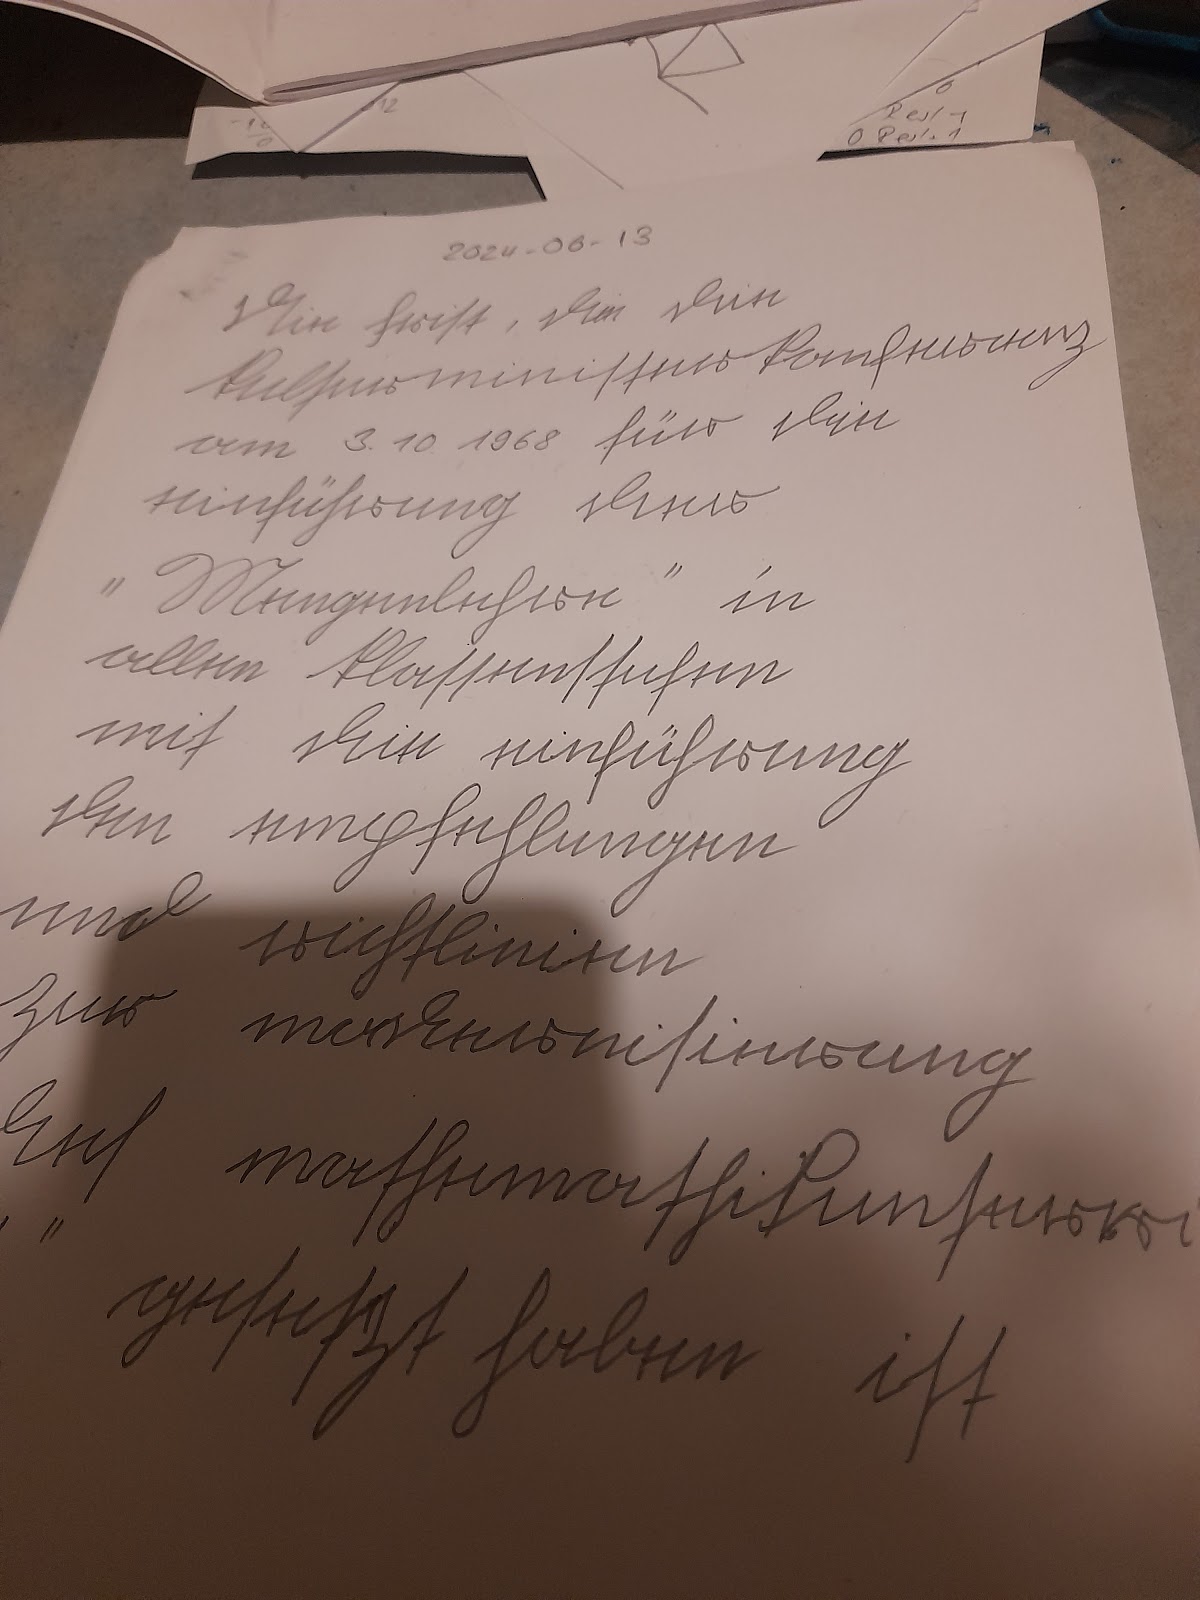 -1
12
0
Rest -1
0 Rest. 1
2024-06-13
Die frist, die die
kultusministerkonferenz
am 3.10 1968 für die
einführung der
"Mengenlehre" in
allen klassenstufen
mit die einführung
den empfehlungen
und richtlinien
zur modernisierung
des mathemathikunterri
"
gesetzt haben ist